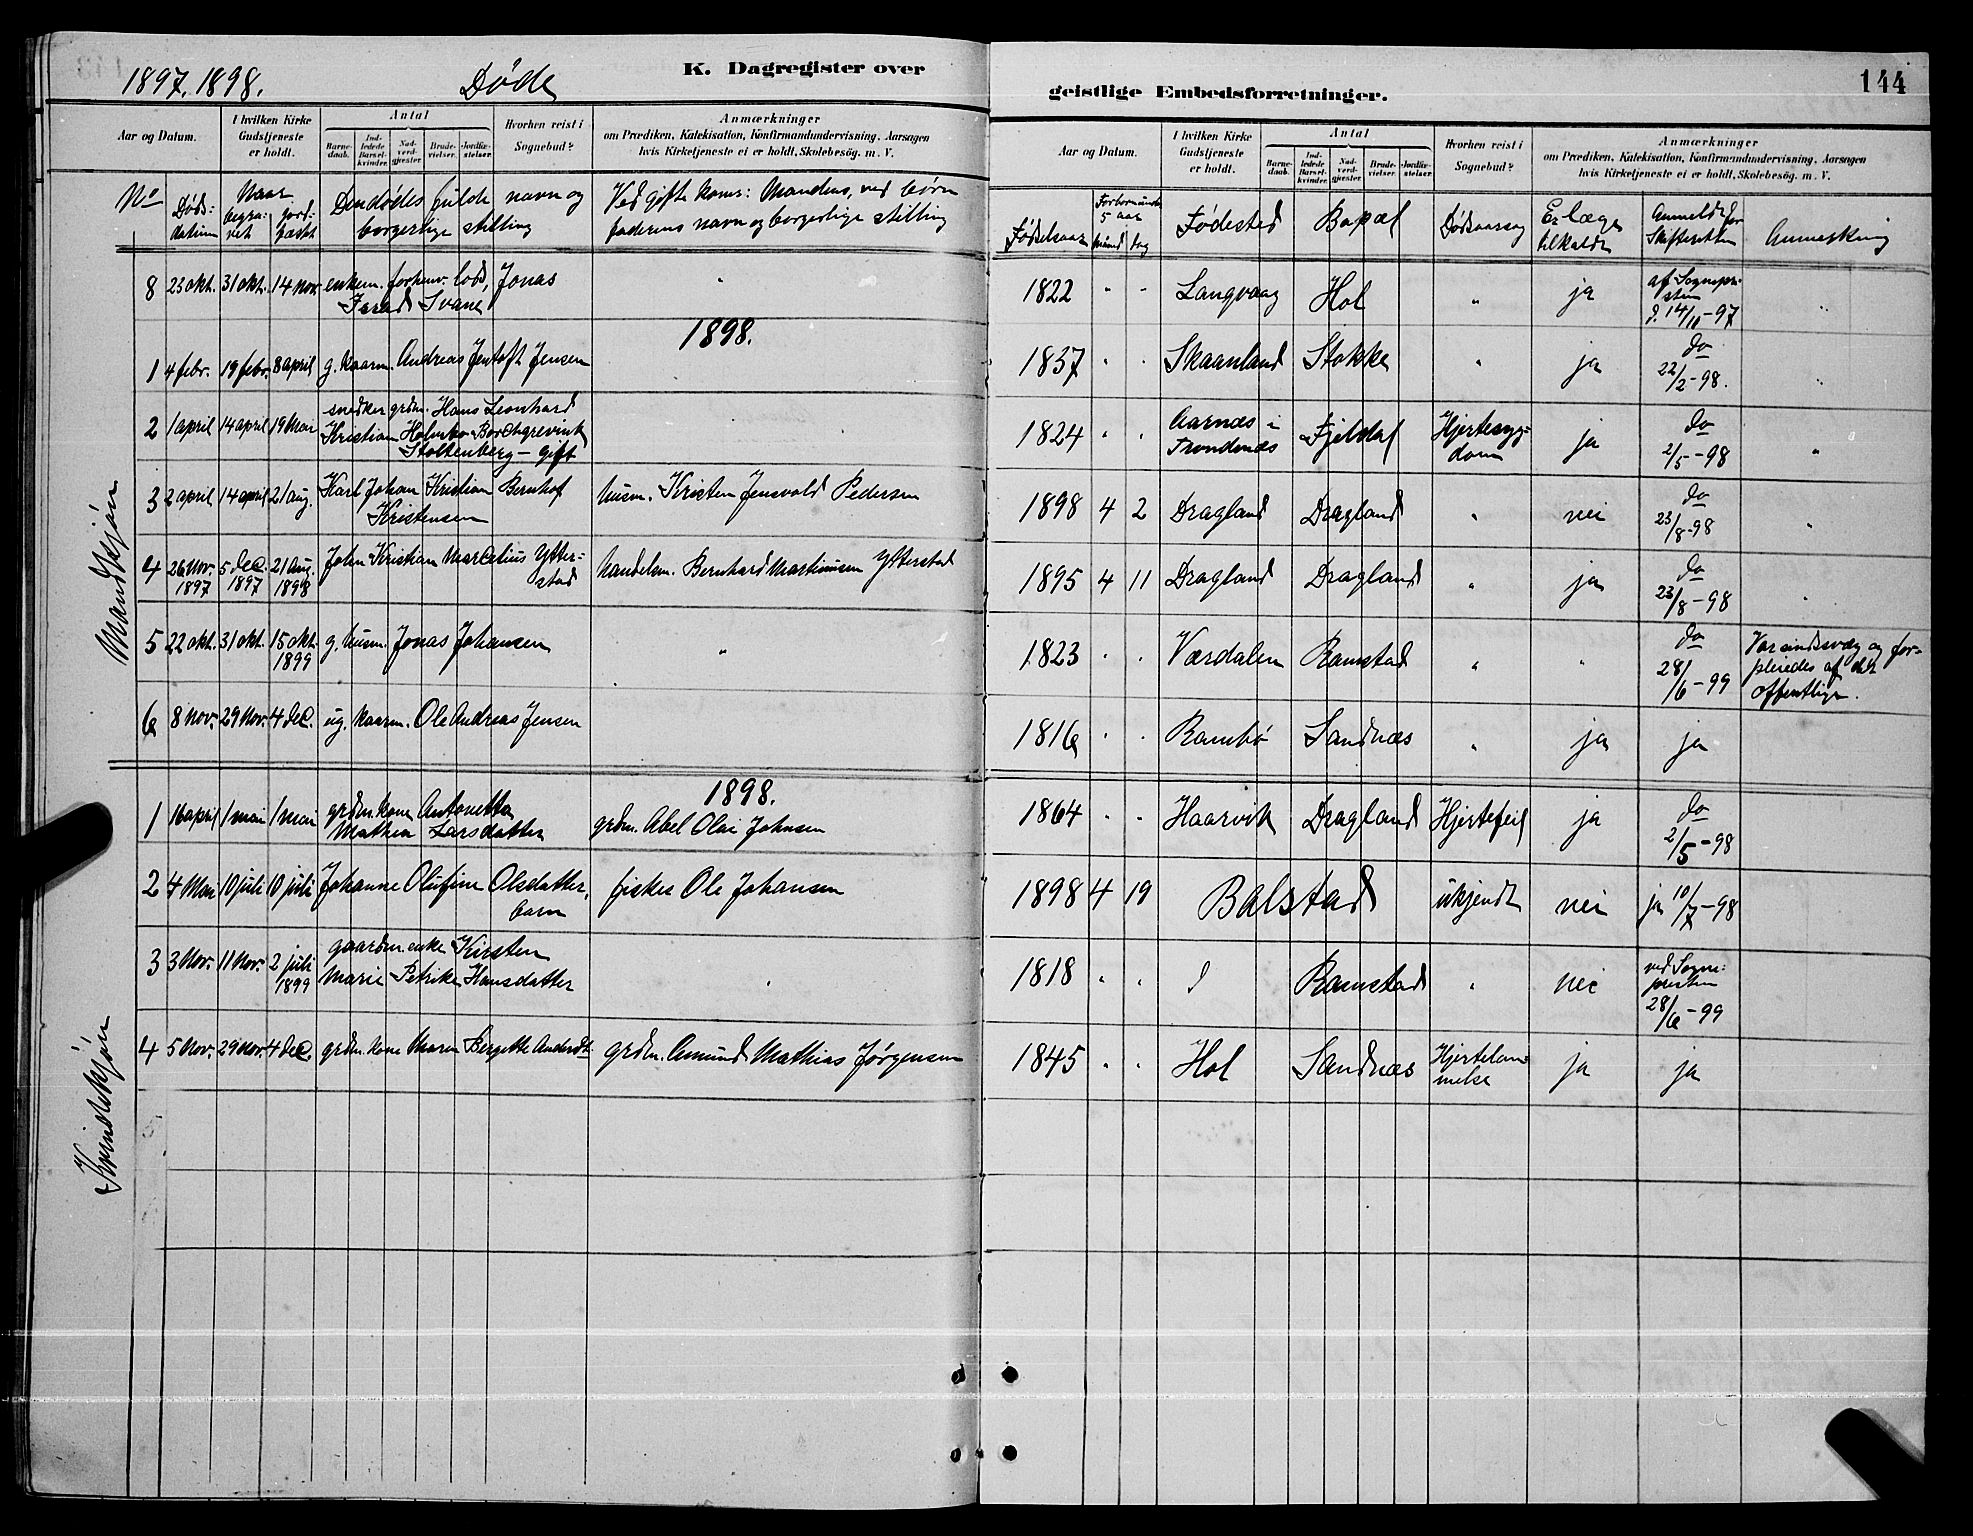 1897. 1898. Døde K. Dagregister over
geistlige Embedsforretninger. 144
Aar og Datum. I hvilken Kirke Gudstjeneste er holdt. Antal Barnedaab. Indledede Barselkvinder. Nadverdgjester. Brudevielser. Jordfæstelser. Hvorhen reist i Sognebud? Anmærkninger
om Prædiken, Katekisation, Konfirmandundervisning, Aarsagen
hvis Kirketjeneste ei er holdt, Skolebesøg. m. V.
Aar og Datum. I hvilken Kirke Gudstjeneste er holdt. Antal Barnedaab. Indledede Barselkvinder. Nadverdgjester. Brudevielser. Jordfæstelser. Hvorhen reist i Sognebud? Anmærkninger
om Prædiken, Katekisation, Konfirmandundervisning, Aarsagen
hvis Kirketjeneste ei er holdt, Skolebesøg. m. V.
No Døds-datum Naar begravet jordfæstet Den dødes fulde navn og borgerlige stilling Ved gifte koner: Mandens, ved børn faderens navn og borgerlige stilling Fødselsaar For børn under 5 aar maaned dag Fødested Bopæl Dødsaarsag Er læge tilkaldt Anmeldt for Skifteretten Anmerkning
Mandkjøn
8 23 okt. 31 okt. 14 nov. enkem. forhenv. lods, Jonas
Svane " 1822 " " Langvaag Hol " ja af Sognepresten d. 14/11-97 "
1898.
1 4 febr. 19 febr. 8 april g. kaarm. Andreas Jentoft Jensen 1837 " " Skaanland Stokke " ja do 22/2-98. "
2 1 april 14 april 19 Mai snedker grdm. Hans Leonhard
Kristian Holmbo Borchgrevink
Stoltenberg - gift 1824 " " Aarnæs i Trondenæs Fjeldal Hjertesygdom ja do 2/5-98 "
3 2 april 14 april 21 aug. Karl Johan Kristian Bernhof
Kristensen husm. Kristen Jensvold Pedersen 1898 4 2 Dragland Dragland " nei do 23/8-98 "
4 26 Nov. 1897 5 dec. 1897 21 Aug. 1898 John Kristian Marcelius Ytterstad handelsm. Bernhard Martinusen Ytterstad 1895 4 11 Dragland Dragland " ja do 23/8-98 "
5 22 okt. 31 okt. 15 okt. 1899 g. husm. Jonas Johansen " 1823 " " Værdalen Ramstad " " do 28/6-99 Var sindssvag og forpleiedes af det offentlige.
6 8 Nov. 29 Nov. 4 dec. ug. kaarm. Ole Andreas Jensen 1816 " " Rambø Sandnæs " ja ja
Kvindekjøn
1898.
1 16 april 1 mai 1 mai grdm. kone Antonetta
Mathea Larsdatter grdm. Abel Olai Johnsen 1864 " " Haarvik Dragland Hjertefeil ja do 2/5-98
2 4 Mai 10 juli 10 juli Johanne Olufine Olsdatter,
barn fisker Ole Johansen 1898 4 19 Balstad ukjendt nei ja 10/7-98
3 3 Nov. 11 Nov. 2 juli 1899 gaardm. enke Kirsten
Marie Petrike Hansdatter " 1818 " " Ramstad " nei ved Sognepresten 28/6-99
4 5 Nov. 29 Nov. 4 dec. grdm. kone Maren Bergette Andersdt. grdm. Amund Mathias Jørgensen 1845 " " Hol Sandnæs Hjertelammelse ja ja